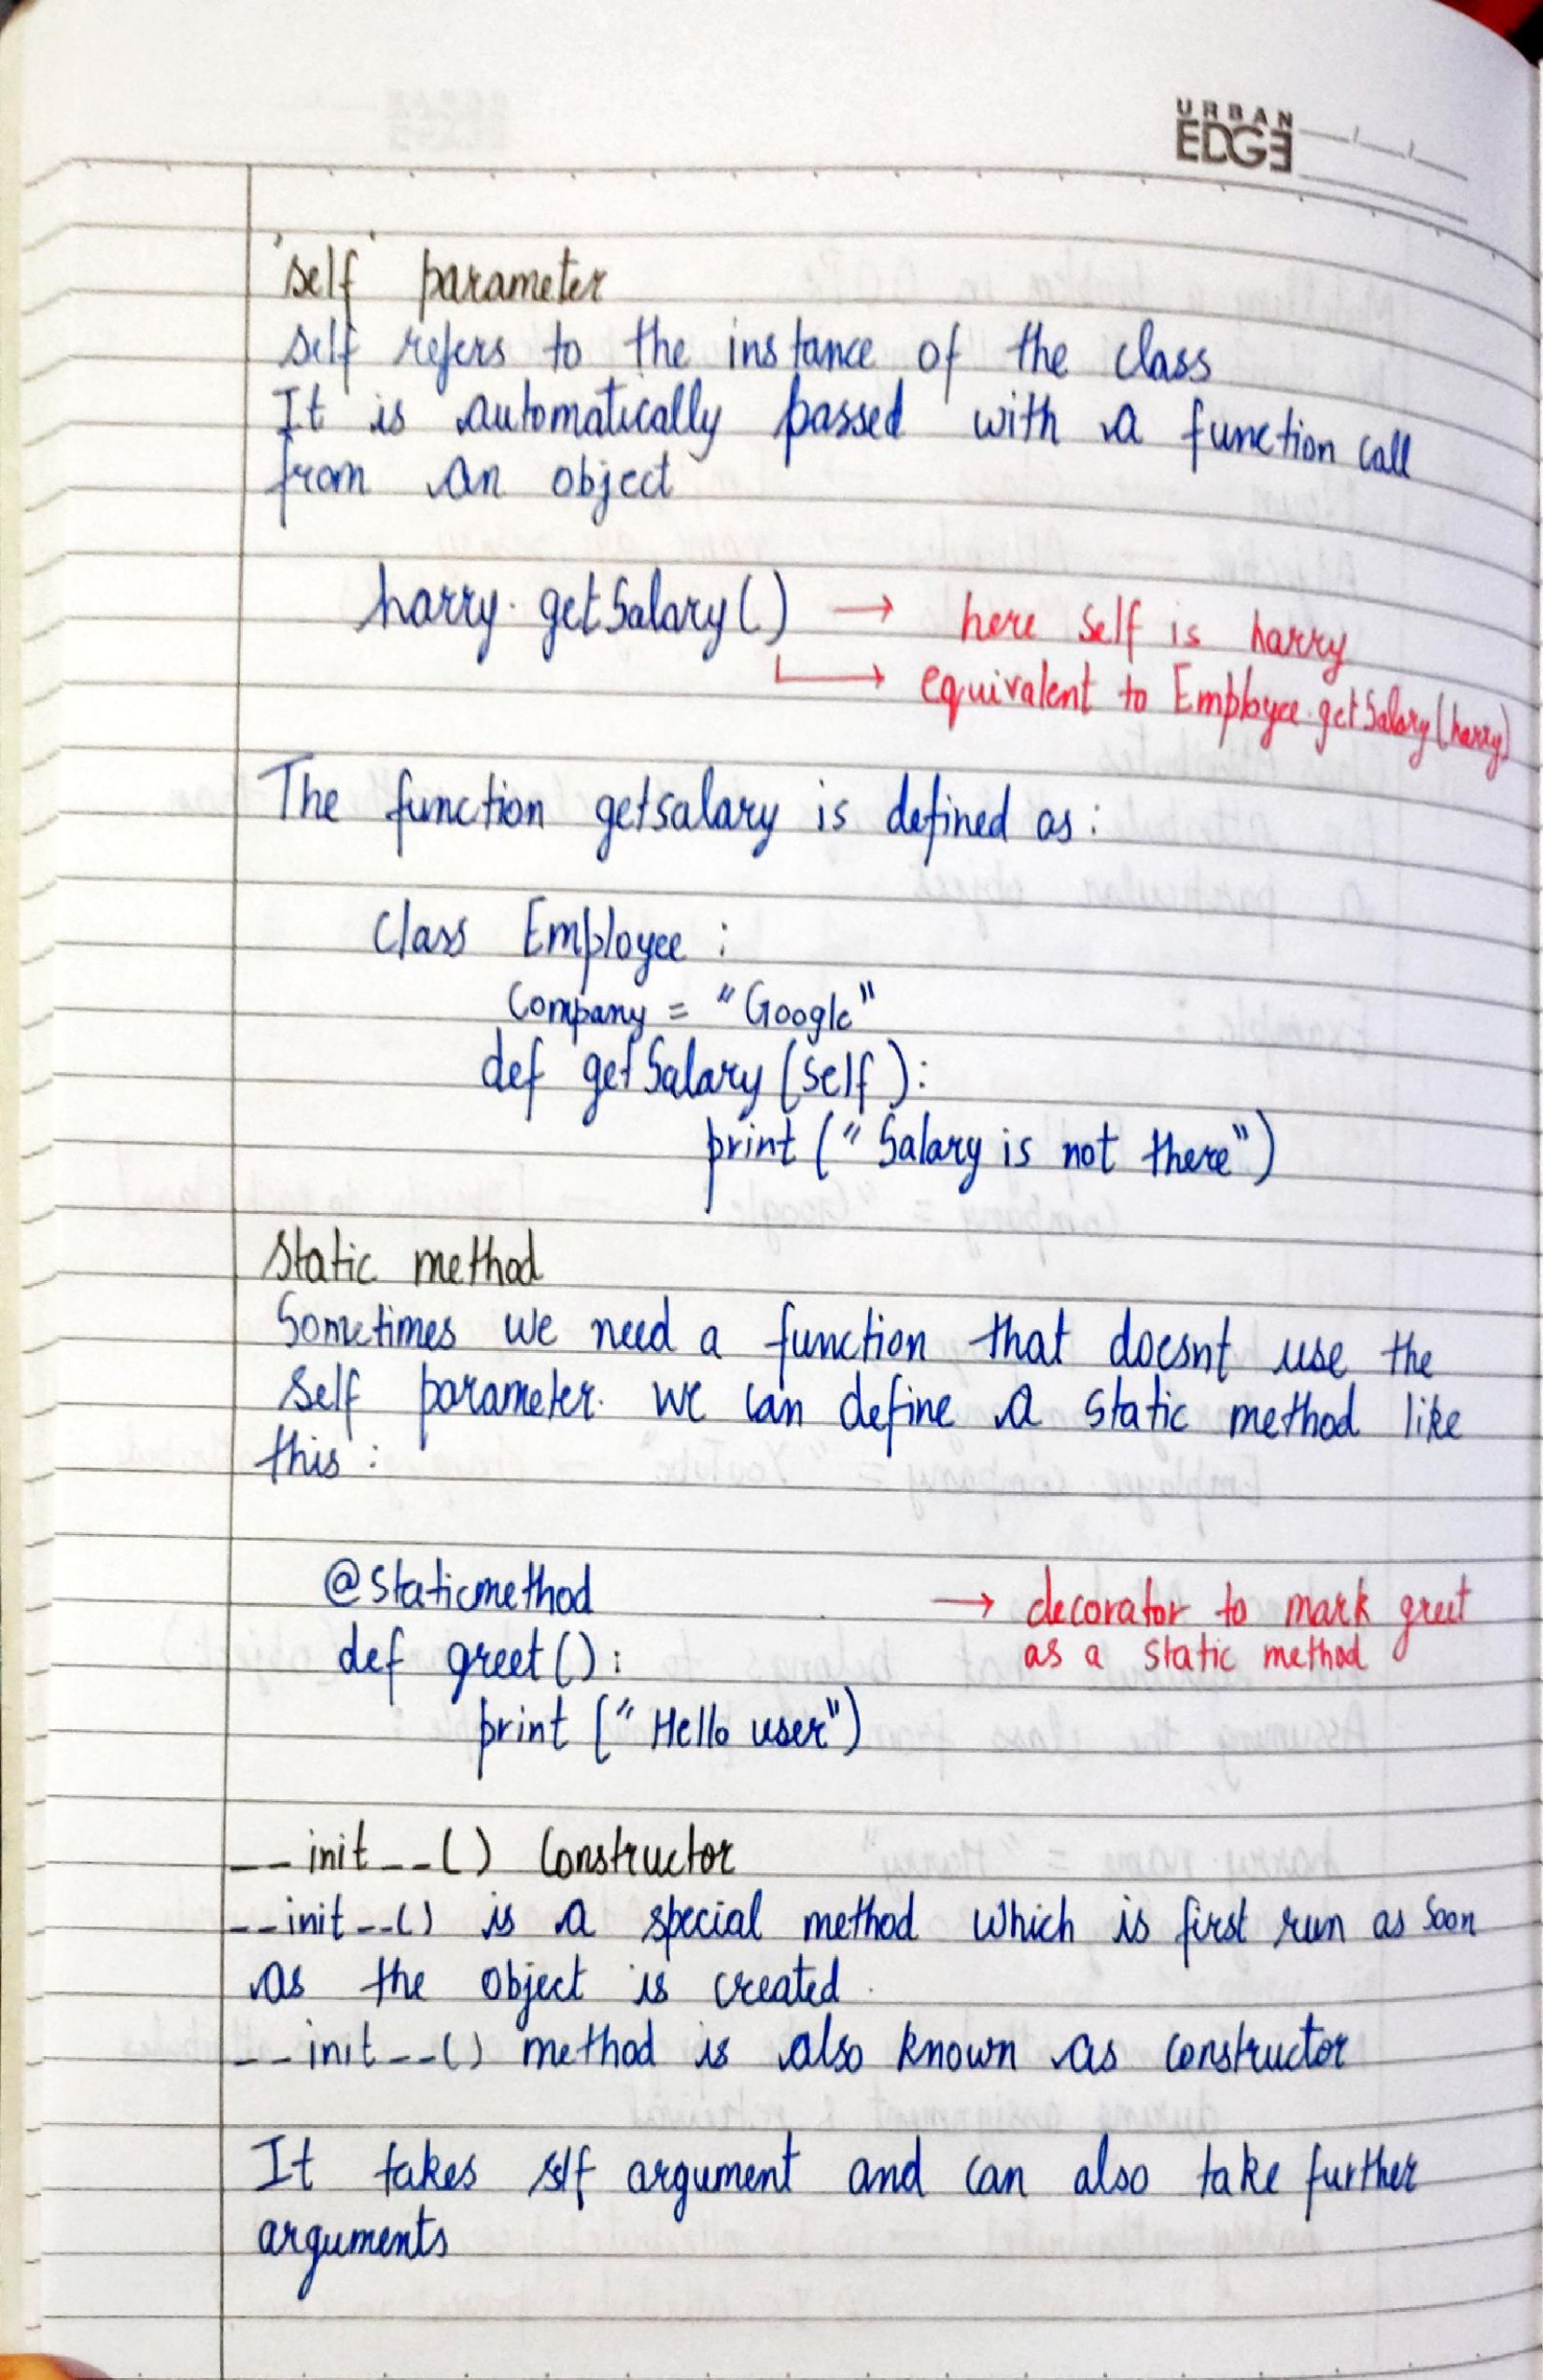 URBAN
EDGE
'self' parameter
self refers to the instance of the class
It is automatically passed with a function call
from an object
harry.getSalary() → here self is harry
→ equivalent to Employee.getSalary(harry)
The function getsalary is defined as:
class Employee:
company = "Google"
def getSalary(self):
print("Salary is not there")
Static method
Sometimes we need a function that doesnt use the
self parameter. we can define a static method like
this:
@staticmethod → decorator to mark greet
def greet(): as a static method
print("Hello user")
__init__() Constructor
__init__() is a special method which is first run as soon
as the object is created.
__init__() method is also known as constructor
It takes self argument and can also take further
arguments